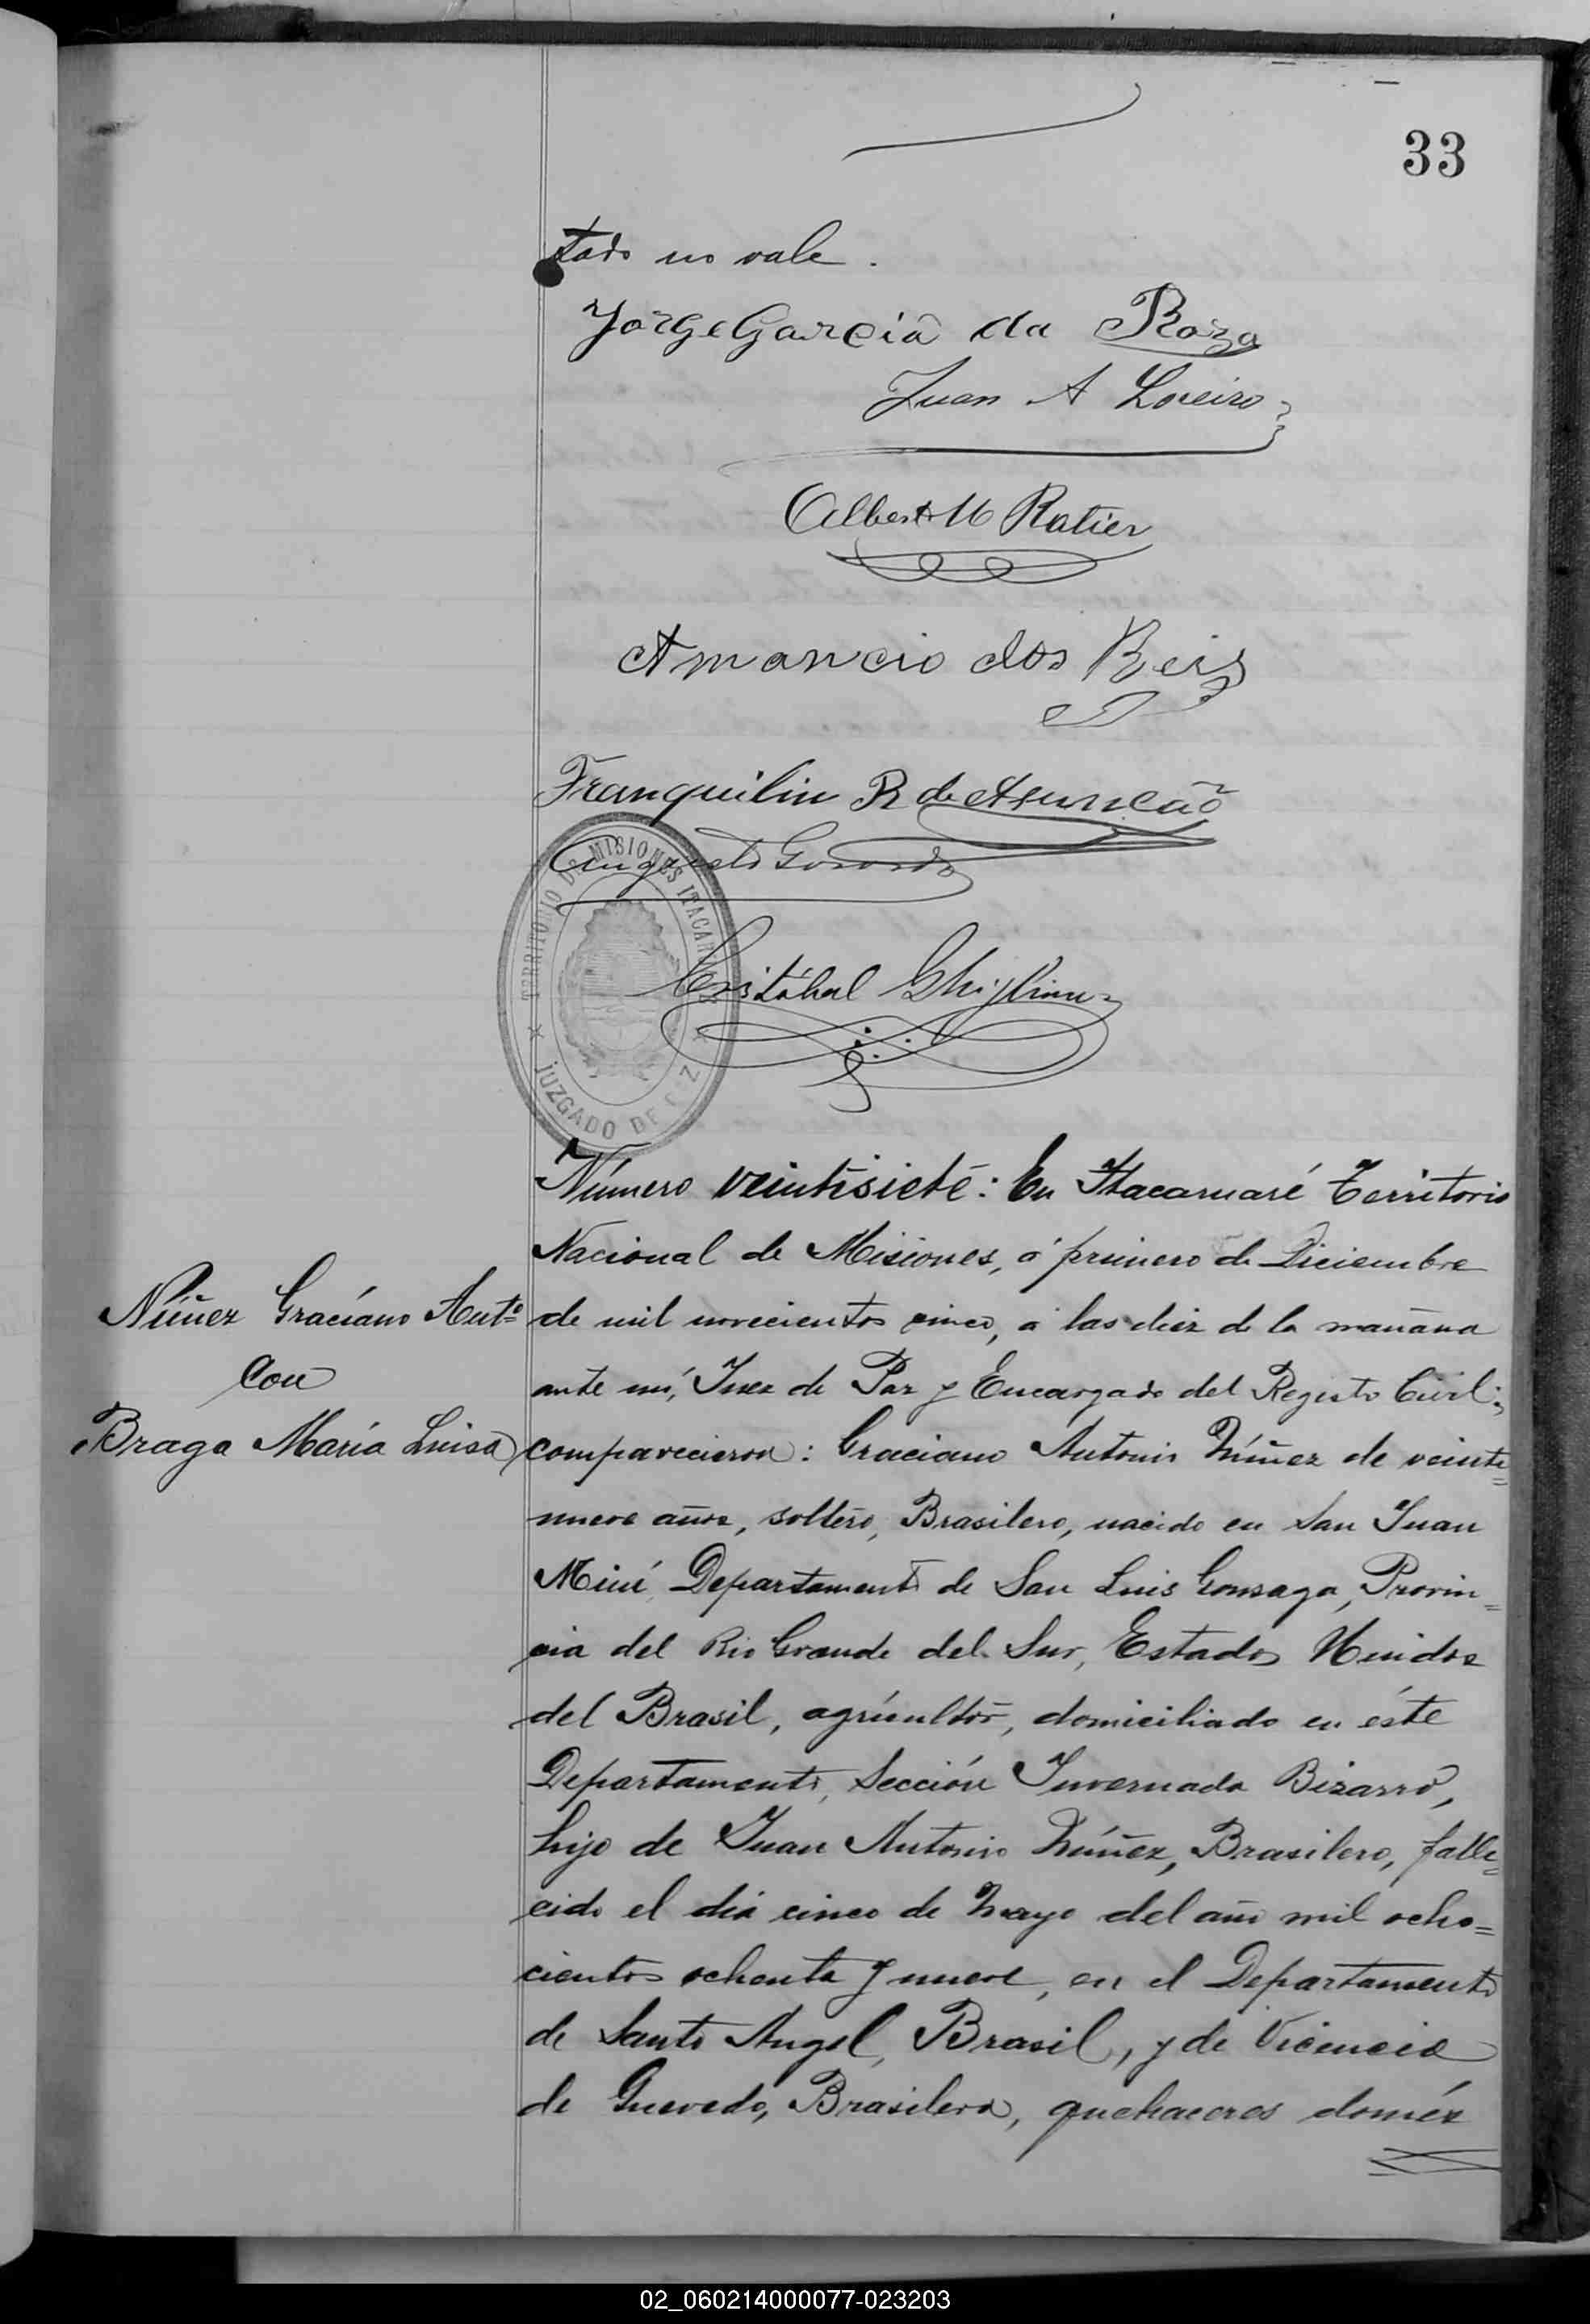 33
tado no vale.
Jorge Garcia da Roza
Juan A Loreiro
Alberto M Ratier
Amancio dos Reis
Franquilin R de Asuncão
Augusto
TERRITORIO DE MISIONES ITACARUARÉ
JUZGADO DE PAZ
Cristóbal
Número veintisiete: En Itacaruaré Territorio
Nacional de Misiones, á primero de Diciembre
Núñez Graciano Antº
de mil novecientos cinco, a las diez de la mañana
con
ante mí, Juez de Paz y Encargado del Registo Civil;
Braga María Luisa
comparecieron: Graciano Antonio Núñez de veinte=
nueve años, soltero, Brasilero, nacido en San Juan
Miní, Departamento de San Luis Gonsaga, Provin=
cia del Rio Grande del Sur, Estados Unidos
del Brasil, agricultor, domiciliado en éste
Departamento, Sección Invernada Bizarro,
hijo de Juan Antonio Núñez, Brasilero, falle=
cido el día cinco de Mayo del año mil ocho=
cientos ochenta y nueve, en el Departamento
de Santo Angel, Brasil, y de Vicencia
de Quevedo, Brasilera, quehaceres domés
02_060214000077-023203